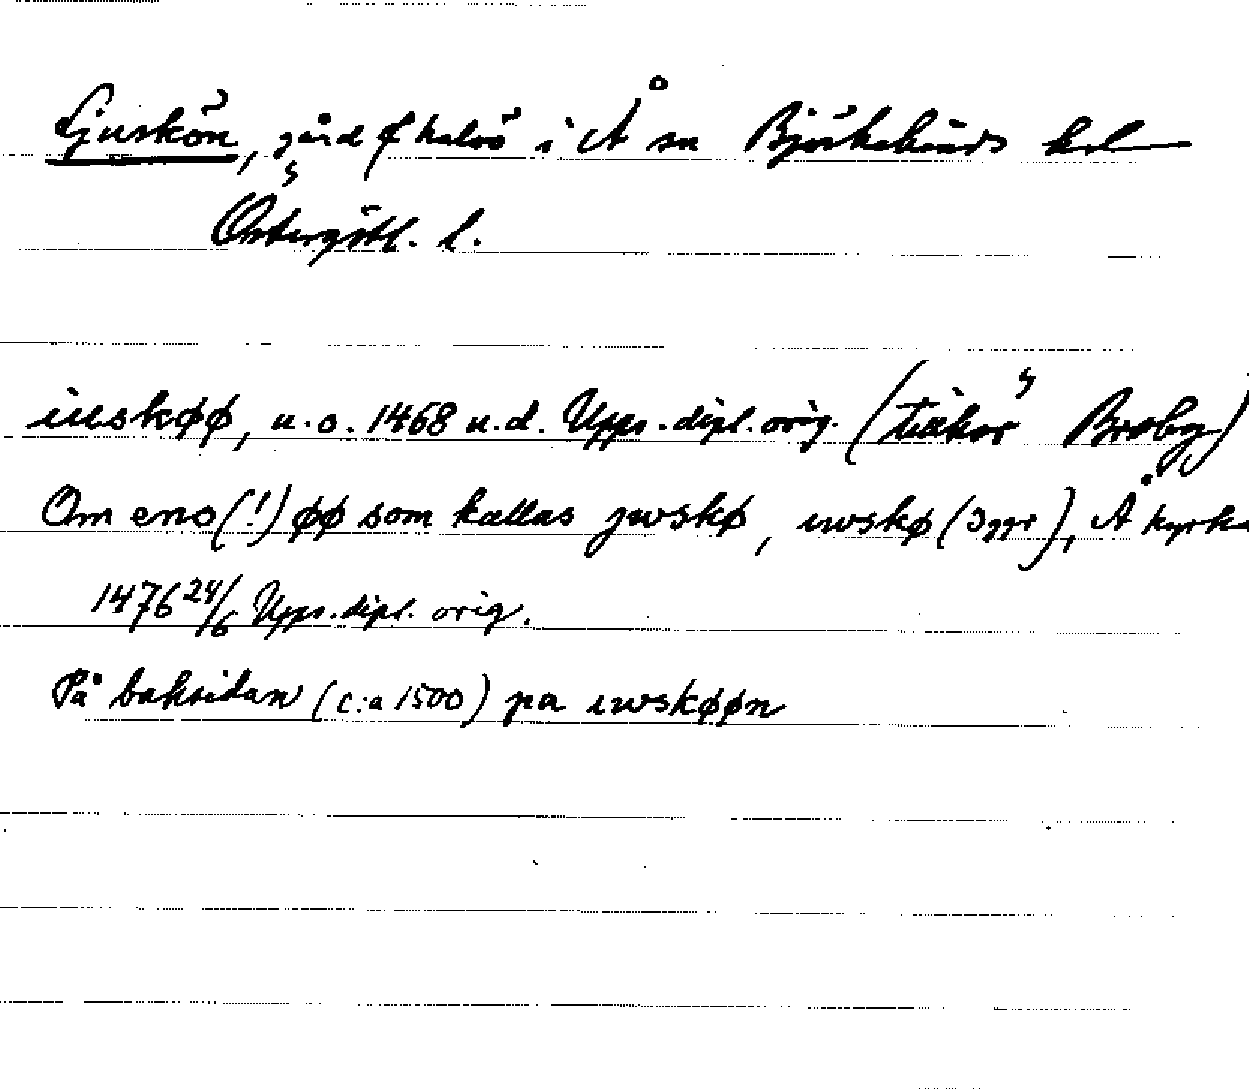 Ljuskön, gård f halvö i Å sn Björkekinds hd
Östergötl. l.
iuskøø, u.o. 1468 u.d. Upps. dipl. orig. (Broby)
Om eno(!) øø som kallas jwskø, iwskø (3 ggr), Å kyrka
1476 24/6 Upps. dipl. orig.
På baksidan (c:a 1500) pa iwskøøn